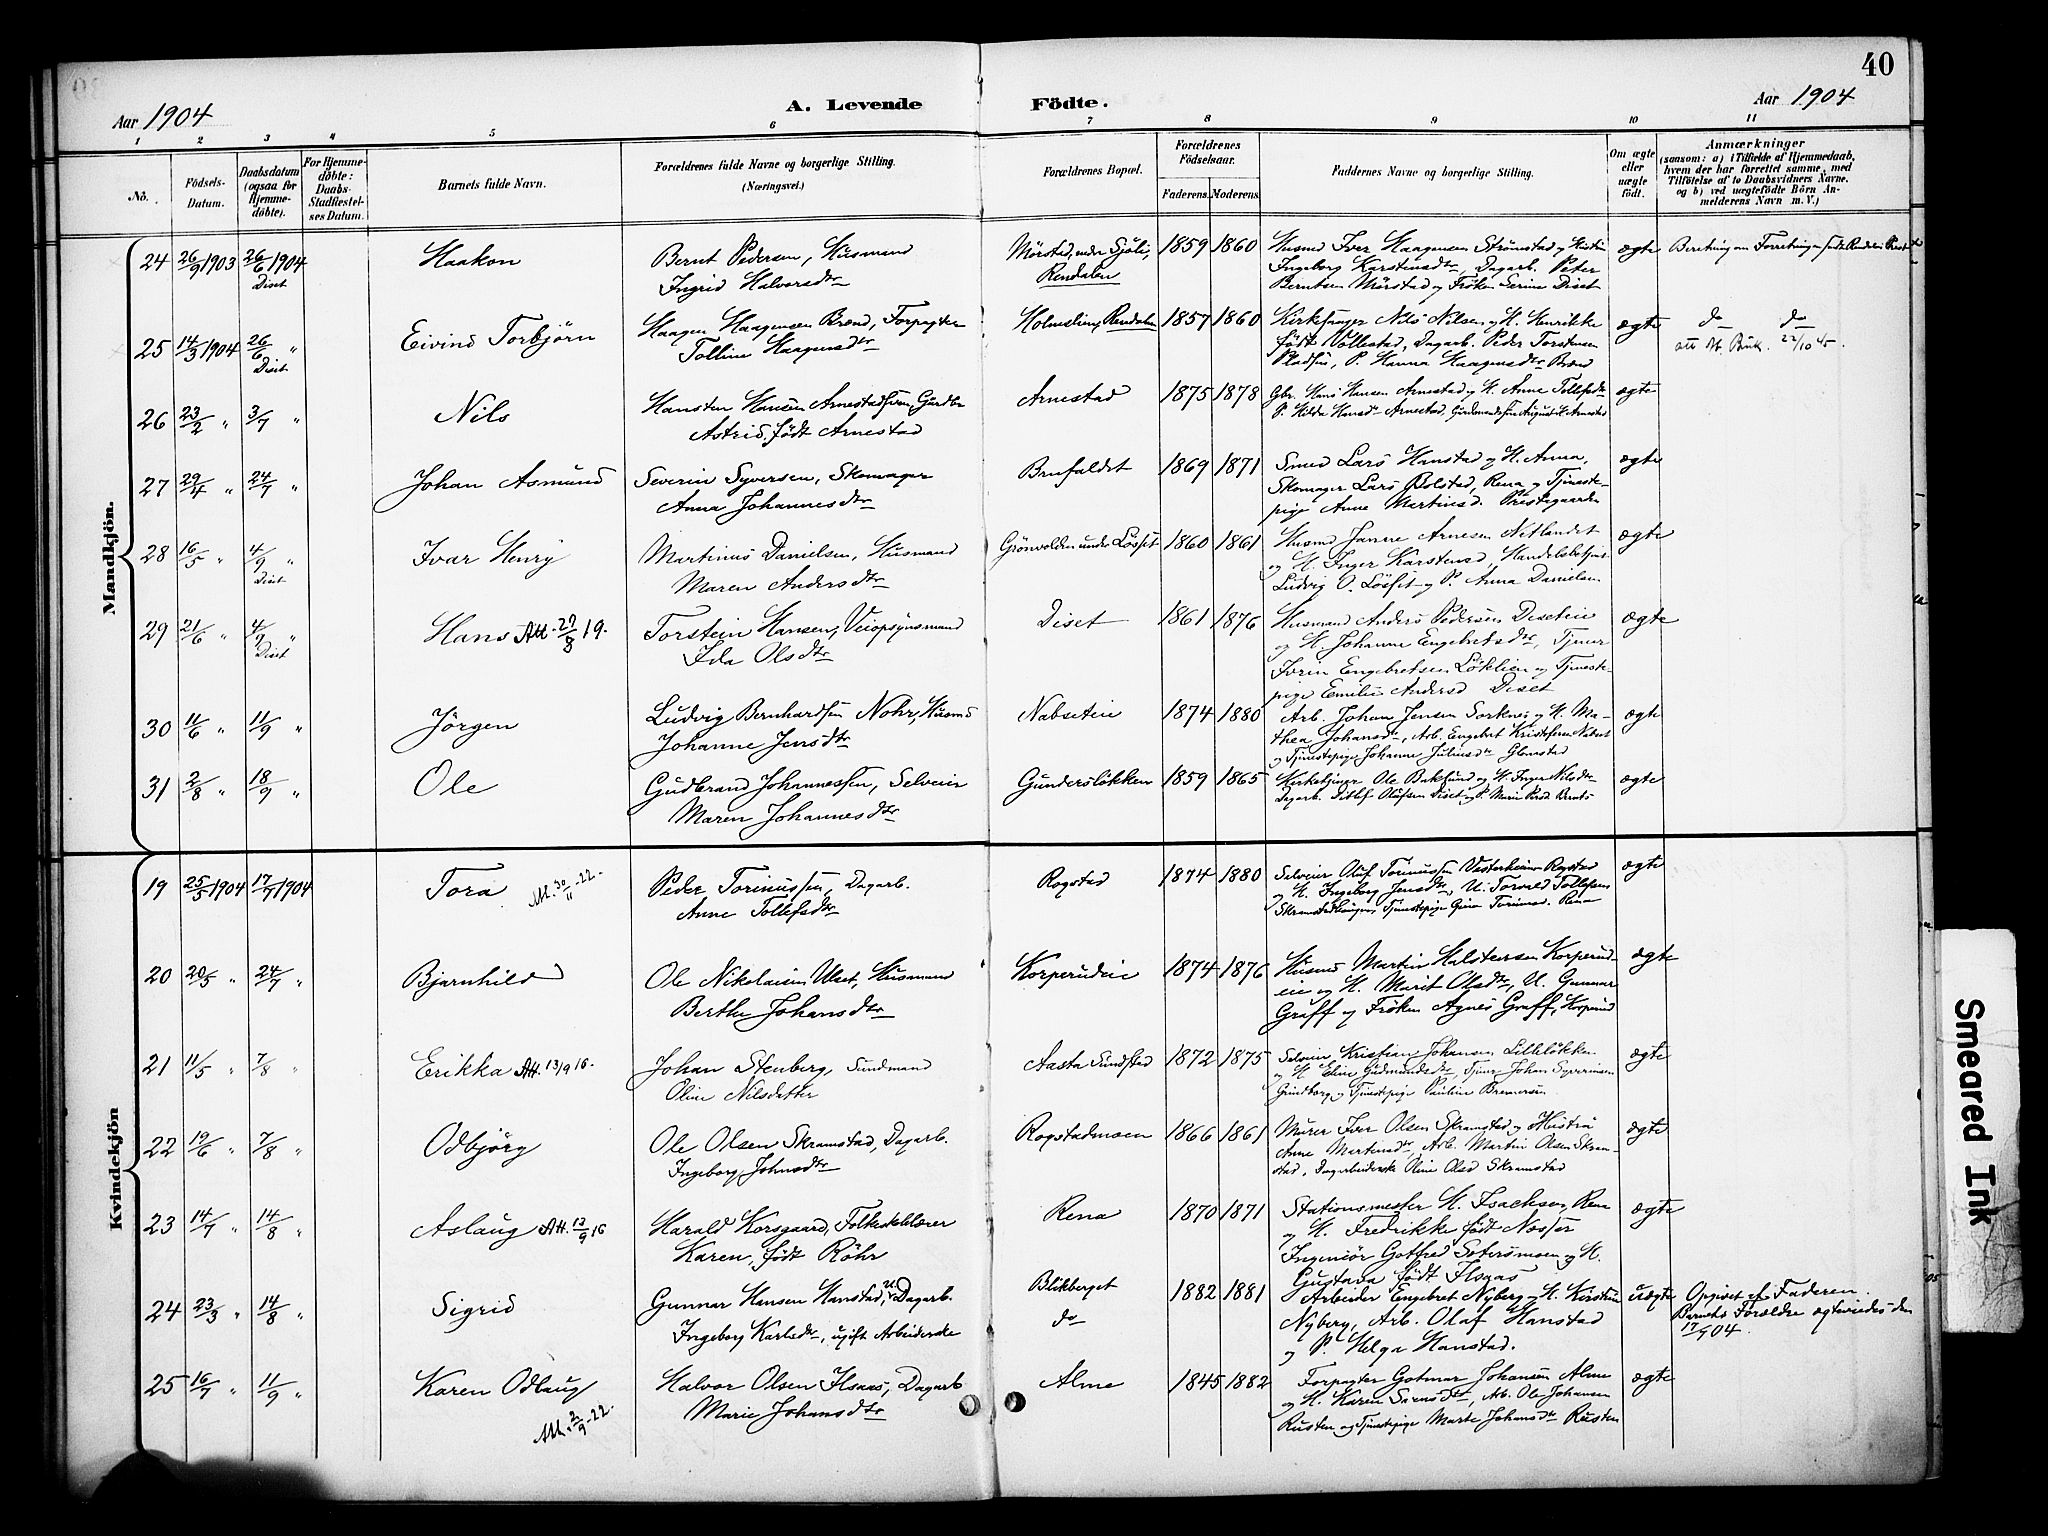 40
Aar 1904
A. Levende Födte.
Aar 1904
1 2 3 4 5 6 7 8 9 10 11
No.
Födsels-Datum.
Daabsdatum (ogsaa for Hjemmedöbte).
For Hjemmedöbte: Daabs-Stadfæstelses Datum.
Barnets fulde Navn.
Forældrenes fulde Navne og borgerlige Stilling.
(Næringsvei.)
Forældrenes Bopæl.
Forældrenes Födselsaar.
Faderens. Moderens.
Faddernes Navne og borgerlige Stilling.
Om ægte eller uægte födt.
Anmærkninger
(saasom: a) i Tilfælde af Hjemmedaab, hvem der har forrettet samme, med Tilföielse af to Daabsvidners Navne, og b) ved uægtefödte Börn Anmelderens Navn m. V.)
Mandkjön.
24 26/9 1903 26/6 1904 Diset Haakon
Bernt Pedersen, Husmand
Ingrid Halvorsdtr
Mörstad, under Sjöli, Rendalen 1859 1860
Husmd Iver Haagensen Strömstad og Hustru
Ingeborg Karstensdtr, Dagarb. Peter
Berntsen Mörstad og Fröken Serine Diset
ægte
25 14/3 1904 26/6 " Diset Eivind Torbjörn
Haagen Haagensen Brænd, Forpagter
Tolline Haagensdtr
Rendalen 1857 1860
Kirkesanger Nils Nilsen og H. Henrikke
født Vollestad, Dagarb. Peder Torstensen
P. Hanna Haagensdtr Brænd
ægte do do
att 22/10 45.
26 23/2 " 3/7 " Nils
Hansten Hansen Arnestadsveen, Gaardbr
Astrid, født Arnestad
Arnestad 1875 1878
Gbr. Hans Hansen Arnestad og H. Anne Tollefsdtr
P. Hilda Hansdtr Arnestad, Arnestad
ægte
27 29/4 " 24/7 " Johan Asmund
Severin Syversen, Skomager
Anna Johannesdtr
Brufaldet 1869 1871
Smed Lars Hanstad og H. Anna,
Skomager Lars Bolstad, Rena og Tjeneste-
pige Anne Martinsd. Prestegaarden
ægte
28 16/5 " 4/9 " Diset Ivar Henry
Martinus Danielsen, Husmand
Maren Andersdtr
Grönvolden under Lösset 1860 1861
Husmd Janne Arnesen Netlandet
og H. Inger Karstensd, Handelsbetjent
Ludvig O. Lösset og P. Anna Danielsen
ægte
29 21/6 " 4/9 " Diset Hans Att. 27/8 19.
Torstein Hansen, Veiopsynsmand
Ida Olsdtr
Diset 1861 1876
Husmand Anders Pedersen Diseteie
og H. Johanne Engebretsdtr, Tjener
Iver Engebretsen Löklien og Tjeneste-
pige Emilie Andersd Diset
ægte
30 11/6 " 11/9 " Jörgen
Ludvig Bernhardsen Nohr, Husmd
Johanne Jensdtr
Nabseteie 1874 1880
Arb. Johan Jensen Sorknes og H. Ma-
thea Johansdtr, Arb. Engebret Kristofersen Nabset
og Tjenestepige Johanne Juliusdtr Glomstad
ægte
31 2/8 " 18/9 " Ole
Gudbrand Johannessen, Selveier
Maren Johannesdtr
Gunderslökken 1859 1865
Kirketjener Ole Baklund og H. Inger Nilsdtr
Dagarb. Ditlef Olafsen Diset og P. Marie
ægte
Kvindekjön
19 25/5 1904 17/7 1904 Tora Att. 30/11-22.
Peder Torinussen, Dagarb.
Anne Tollefsdtr
Rogstad 1874 1880
Selveier Olaf Torinussen Vesterheim Rogstad
og H. Ingeborg Jensdtr, U. Torvald Tollefsen
Tjenestepige Gina Torinusd. Rena
ægte
20 20/5 " 24/7 " Bjarnhild
Ole Nikolaisen Ulset, Husmand
Berthe Johansdtr
Korperudeie 1874 1876
Husmd Martin Halstensen Korperud-
eie og H. Marit Olsdtr, U. Gunnar
Graff og Fröken Agnes Graff, Korperud
ægte
21 11/5 " 7/8 " Erikka Att. 13/9 16.
Johan Stenberg, Sundmand
Oline Nilsdatter
Aasta Sundsted 1872 1875
Selveier Kristian Johansen Lillelökken
og H. Eline Gudmundsdtr, Tjener Johan Syvertsen
Grindberg og Tjenestepige Pauline Bremersen
ægte
22 19/6 " 7/8 " Odbjörg
Ole Olsen Skramstad, Dagarb.
Ingeborg Johnsdtr
Rogstadmoen 1866 1861
Murer Iver Olsen Skramstad og Hustru
Anne Martensdtr, Arb. Martin Olsen Skram-
stad, Dagarbeiderske Oline Olsd Skramstad
ægte
23 14/7 " 14/8 " Aslaug Att. 13/9 16
Harald Korsgaard, Folkeskolelærer
Karen, født Röhr
Rena 1870 1871
Stationsmester H. Isachsen, Rena
og H. Fredrikke født Nosser
Ingeniör Gotfred Sætersmoen og H.
Gustava født Ilsaas
ægte
24 23/3 " 14/8 " Sigrid
Gunnar Hansen Hanstad, U. Dagarb.
Ingeborg Karlsdtr, ugift Arbeiderske
Blikberget
do 1882 1881
Arbeider Engebret Nyberg og H. Kirstine
Nyberg, Arb. Olaf Hanstad
og P. Helga Hanstad.
uægte Opgivet af Faderen.
Barnets Forældre ægteviedes den
17/7 904.
25 16/7 " 11/9 " Karen Odlaug
Att. 2/9-22.
Halvor Olsen Ilsaas, Dagarb
Marie Johansdtr
Alme 1845 1882
Forpagter Gotmar Johansen Alme
og H. Karen Svensdtr, Arb. Ole Johansen
Rusten og Tjenestepige Marte Johansdtr Rusten
ægte
Smeared Ink